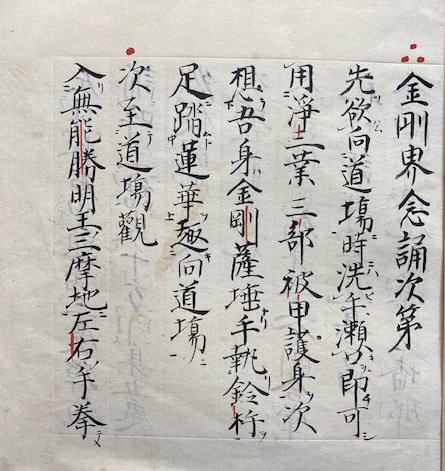 金剛界念誦次第
先欲向道場時洗手漱口即可
用淨三業三部被甲護身次
想吾身金剛薩埵手執鈴杵
足踏蓮華趣向道場
次至道場觀
入無能勝明王三摩地左右手拳